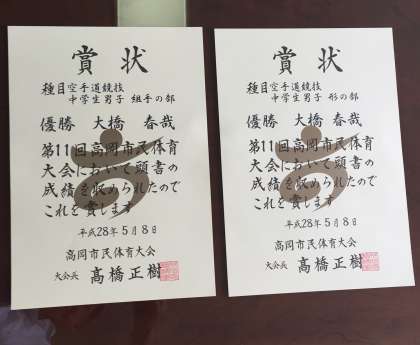 賞状
種目 空手道競技
中学生男子 組手の部
優勝 大橋 春哉
第11回高岡市民体育
大会において頭書の
成績を収められたので
これを賞します
平成28年5月8日
高岡市民体育大会
大会長 髙橋正樹
賞状
種目 空手道競技
中学生男子 形の部
優勝 大橋 春哉
第11回高岡市民体育
大会において頭書の
成績を収められたので
これを賞します
平成28年5月8日
高岡市民体育大会
大会長 髙橋正樹